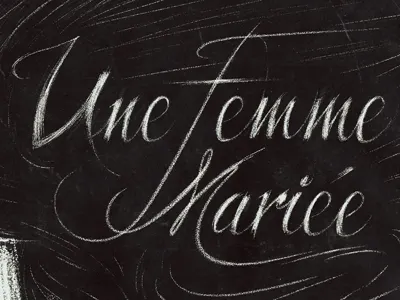 Une Femme
Mariée